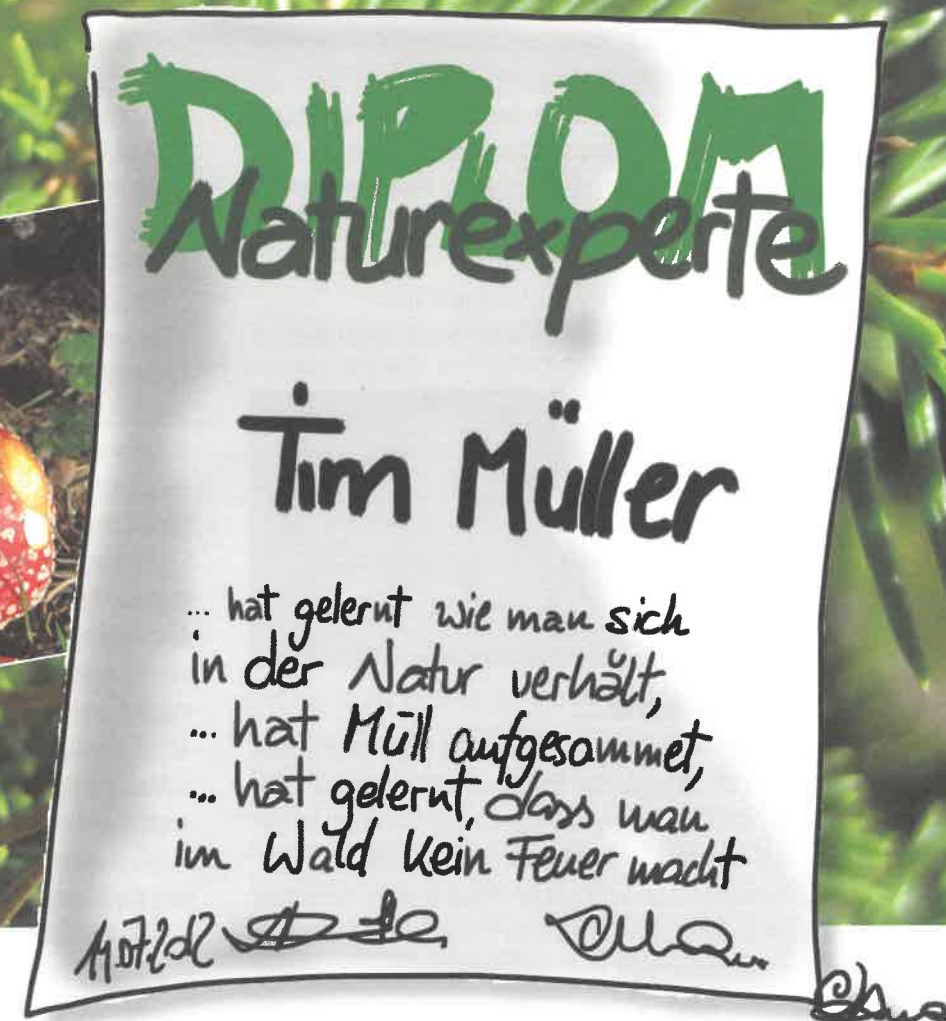 DIPLOM
Naturexperte
Tim Müller
... hat gelernt wie man sich
in der Natur verhält,
... hat Müll aufgesammet,
... hat gelernt, dass man
im Wald kein Feuer macht